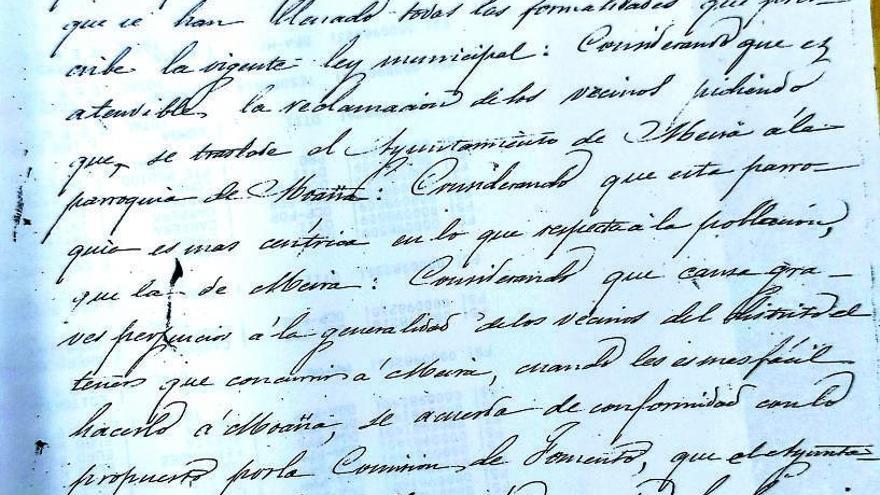 que se han llenado todas las formalidades que pres-
cribe la vigente ley municipal: Considerando que es
atendible, la reclamacion de los vecinos pidiendo
que, se traslade el Ayuntamiento de Meira á la
parroquia de Moaña: Considerando que esta parro-
quia es mas centrica en lo que respecta á la poblacion,
que la de Meira: Considerando que causa gra-
ves perjuicios á la generalidad de los vecinos del distrito el
tener que concurrir á Meira, cuando les es mas fácil
hacerlo á Moaña, se acuerda de conformidad con lo
propuesto por la Comision de Fomento, que el Ayunta-